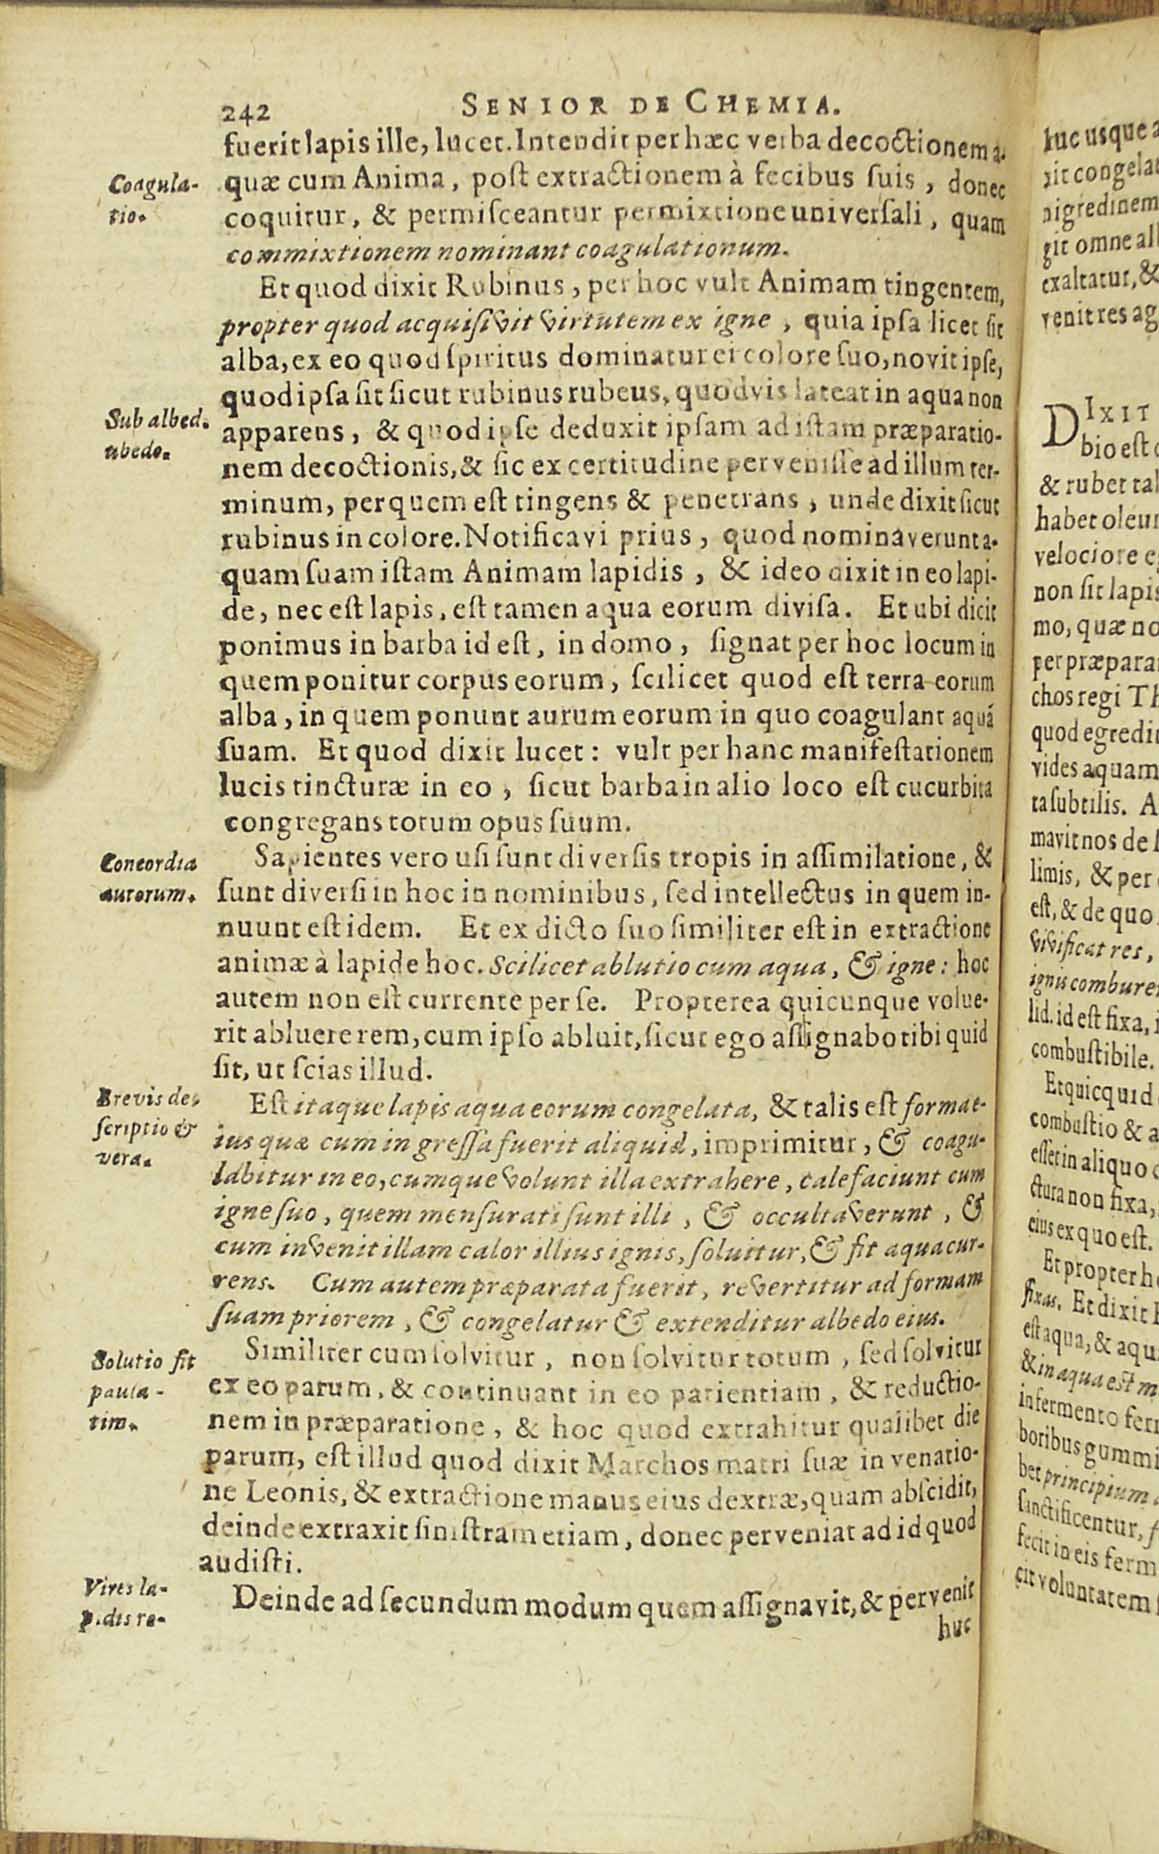 242 SENIOR DE CHEMIA.
fuerit lapis ille, lucet. Intendit per hæc verba decoctionem a-
quæ cum Anima, post extractionem à fecibus suis, donec
coquitur, & permisceantur permixtione universali, quam
commixtionem nominant coagulationum.
Coagula-
tio.
Et quod dixit Rubinus, per hoc vult Animam tingentem,
propter quod acquisivit virtutem ex igne, quia ipsa licet sit
alba, ex eo quod spiritus dominatur ei colore suo, novit ipse,
quod ipsa sit sicut rubinus rubeus, quodvis lateat in aqua non
apparens, & quod ipse deduxit ipsam ad istam præparatio-
nem decoctionis, & sic ex certitudine pervenisse ad illum ter-
minum, per quem est tingens & penetrans, unde dixit sicut
rubinus in colore. Notificavi prius, quod nominaverunt a-
quam suam istam Animam lapidis, & ideo dixit in eo lapi-
de, nec est lapis, est tamen aqua eorum divisa. Et ubi dicit
ponimus in barba id est, in domo, signat per hoc locum in
quem ponitur corpus eorum, scilicet quod est terra eorum
alba, in quem ponunt aurum eorum in quo coagulant aquã
suam. Et quod dixit lucet: vult per hanc manifestationem
lucis tincturæ in eo, sicut barba in alio loco est cucurbita
congregans totum opus suum.
Sub albed.
ubedo.
Sapientes vero usi sunt diversis tropis in assimilatione, &
sunt diversi in hoc in nominibus, sed intellectus in quem in-
nuunt est idem. Et ex dicto suo similiter est in extractione
animæ à lapide hoc. Scilicet ablutio cum aqua, & igne: hoc
autem non est currente per se. Propterea quicunque volue-
rit abluere rem, cum ipso abluit, sicut ego assignabo tibi quid
sit, ut scias illud.
Concordia
autorum.
Est itaque lapis aqua eorum congelata, & talis est format-
ius quæ cum ingressa fuerit aliquid, imprimitur, & coagu-
labitur in eo, cumque volunt illa extrahere, calefaciunt cum
igne suo, quem mensurati sunt illi, & occultaverunt, &
cum invenit illam calor illius ignis, soluitur, & fit aqua cur-
rens. Cum autem præparata fuerit, revertitur ad formam
suam priorem, & congelatur & extenditur albedo eius.
Brevis de-
scriptio &
vera.
Similiter cum solvitur, non solvitur totum, sed solvitur
ex eo parum, & continuant in eo patientiam, & reductio-
nem in præparatione, & hoc quod extrahitur qualibet die
parum, est illud quod dixit Marchos matri suæ in venatio-
ne Leonis, & extractione manus eius dextræ, quam abscidit,
deinde extraxit sinistram etiam, donec perveniat ad id quod
audisti.
Solutio fit
paula-
tim.
Deinde ad secundum modum quem assignavit, & pervenit
huc
Vires la-
pidis re-
huc usque a
xit congelat
nigredinem
git omne all
exaltatur, &
venit res ag
DIXIT
bio est
& rubet tal
habet oleum
velociore
non sit lapis
mo, quæ no
per præpara
chos regi Th
quod egredi
vides aquam
ta subtilis. A
mavit nos de
limis, & per
est, & de quo
vivificat res,
ignis combure
lid. id est fixa,
combustibile.
Et quicquid
combustio & a
esset in aliquo
ctura non fixa,
eius ex quo est.
Et propter h
fixas. Et dixit
est aqua, & aqu
& in aqua est m
in fermento fer
boribus gummi
bet principium
sanctificentur,
fecit in eis ferm
cit voluntatem